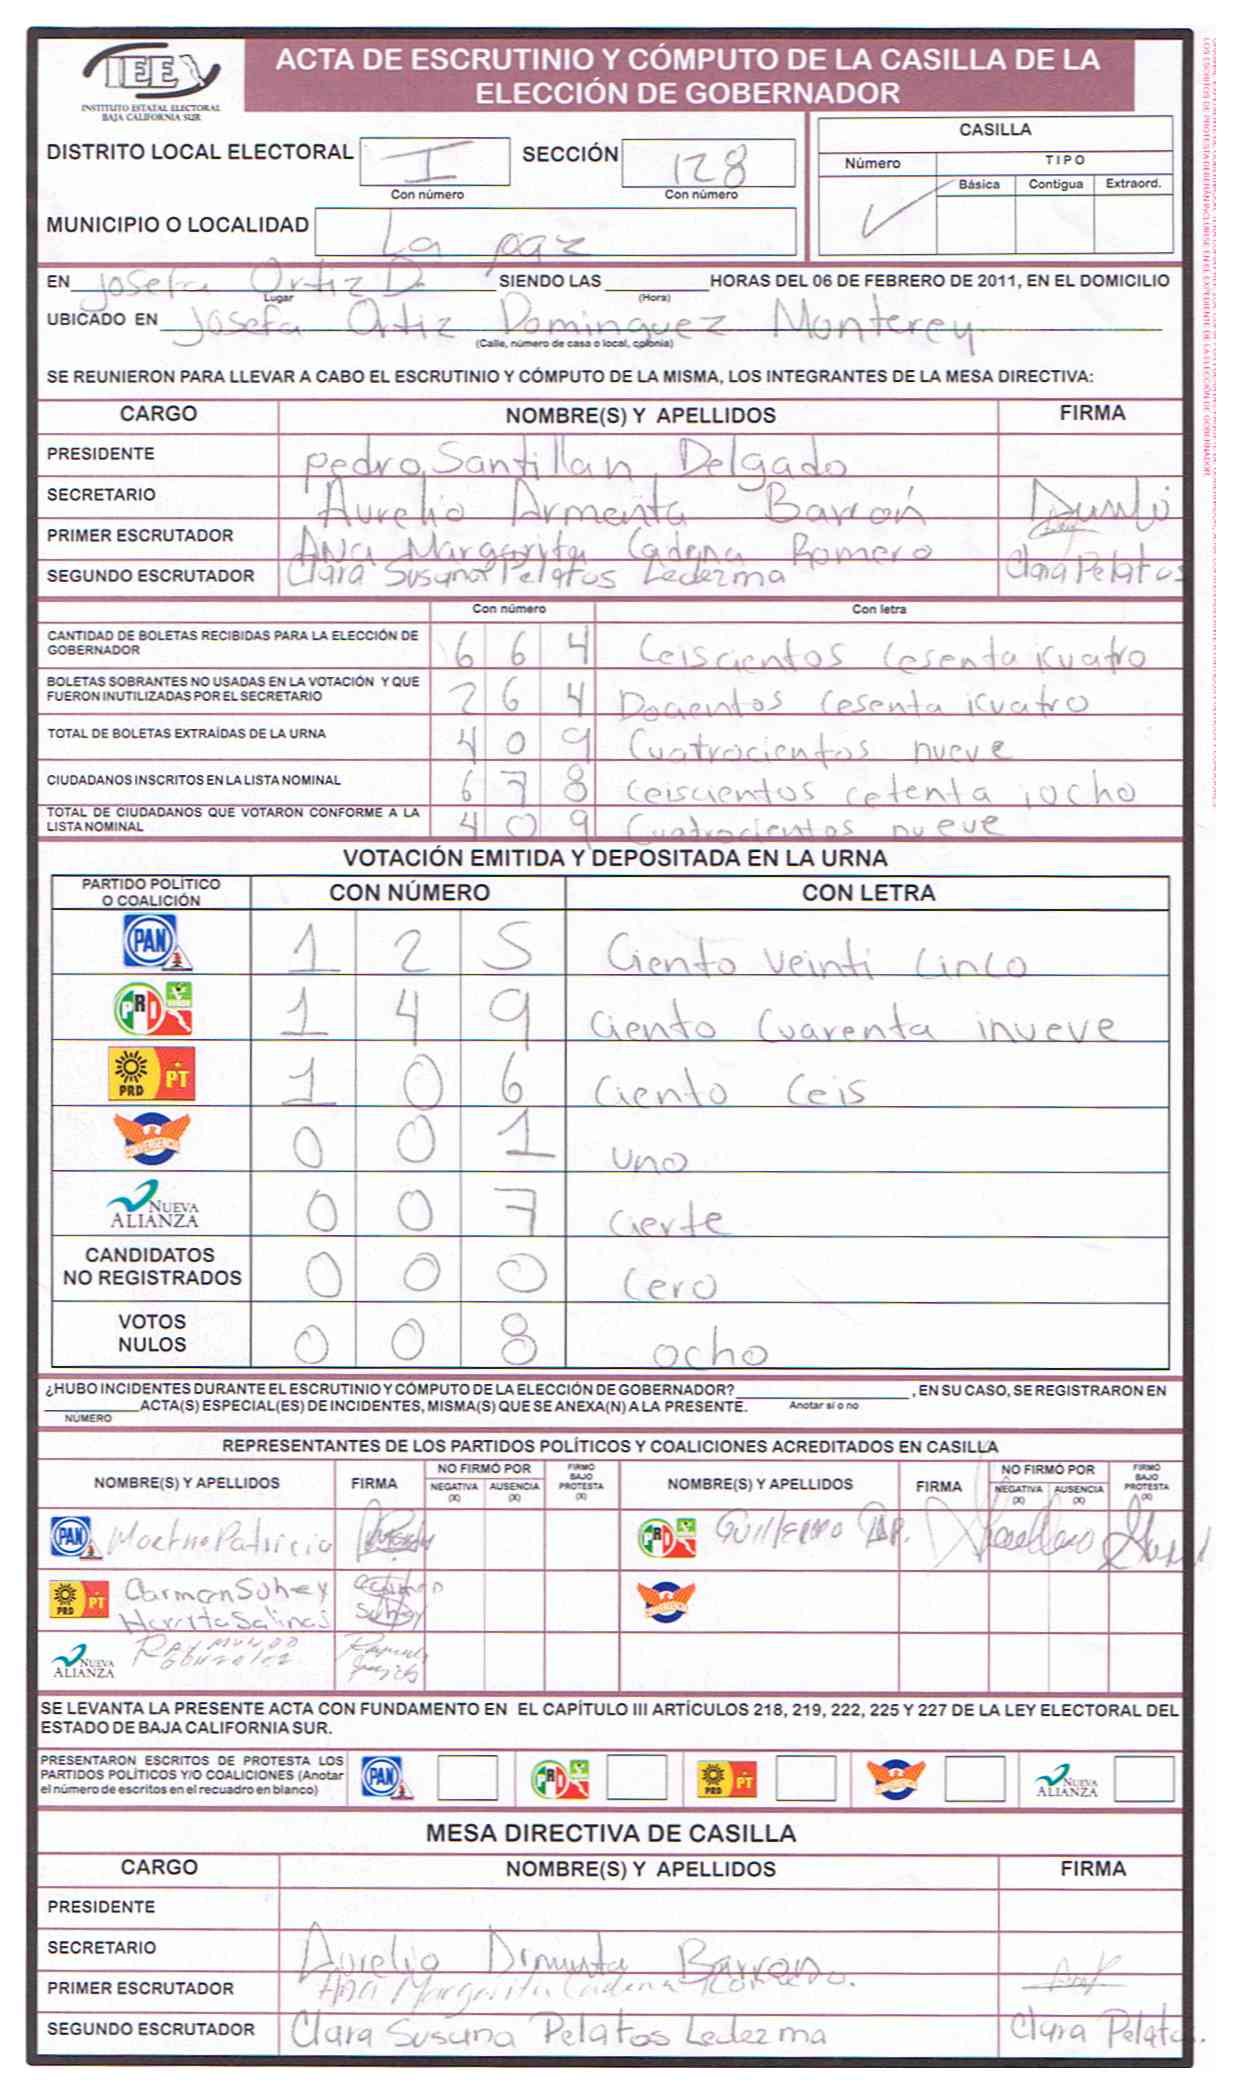 IEE
INSTITUTO ESTATAL ELECTORAL
BAJA CALIFORNIA SUR
ACTA DE ESCRUTINIO Y CÓMPUTO DE LA CASILLA DE LA
ELECCIÓN DE GOBERNADOR
DISTRITO LOCAL ELECTORAL I SECCIÓN 128
Con número Con número
MUNICIPIO O LOCALIDAD La paz
CASILLA
Número TIPO
Básica Contigua Extraord.
EN Josefa Ortiz D. SIENDO LAS HORAS DEL 06 DE FEBRERO DE 2011, EN EL DOMICILIO
Lugar (Hora)
UBICADO EN Josefa Ortiz Dominguez Monterey
(Calle, número de casa o local, colonia)
SE REUNIERON PARA LLEVAR A CABO EL ESCRUTINIO Y CÓMPUTO DE LA MISMA, LOS INTEGRANTES DE LA MESA DIRECTIVA:
CARGO NOMBRE(S) Y APELLIDOS FIRMA
PRESIDENTE pedro Santillan Delgado
SECRETARIO Aurelio Armenta Barrón
PRIMER ESCRUTADOR Ana Margarita Cadena Romero
SEGUNDO ESCRUTADOR Clara Susana Pelatos Ledezma Clara Pelatos
Con número Con letra
CANTIDAD DE BOLETAS RECIBIDAS PARA LA ELECCIÓN DE
GOBERNADOR 6 6 4 Ceiscientos cesenta icuatro
BOLETAS SOBRANTES NO USADAS EN LA VOTACIÓN Y QUE
FUERON INUTILIZADAS POR EL SECRETARIO 2 6 4 Docientos cesenta icuatro
TOTAL DE BOLETAS EXTRAÍDAS DE LA URNA 4 0 9 Cuatrocientos nueve
CIUDADANOS INSCRITOS EN LA LISTA NOMINAL 6 7 8 Ceiscientos cetenta iocho
TOTAL DE CIUDADANOS QUE VOTARON CONFORME A LA
LISTA NOMINAL 4 0 9 Cuatrocientos nueve
VOTACIÓN EMITIDA Y DEPOSITADA EN LA URNA
PARTIDO POLÍTICO
O COALICIÓN CON NÚMERO CON LETRA
PAN 1 2 5 Ciento Veinti Cinco
PRI 1 4 9 Ciento Cuarenta inueve
PRD PT 1 0 6 Ciento Ceis
CONVERGENCIA 0 0 1 uno
NUEVA
ALIANZA 0 0 7 cierte
CANDIDATOS
NO REGISTRADOS 0 0 0 cero
VOTOS
NULOS 0 0 8 ocho
¿HUBO INCIDENTES DURANTE EL ESCRUTINIO Y CÓMPUTO DE LA ELECCIÓN DE GOBERNADOR? , EN SU CASO, SE REGISTRARON EN
ACTA(S) ESPECIAL(ES) DE INCIDENTES, MISMA(S) QUE SE ANEXA(N) A LA PRESENTE. Anotar sí o no
NÚMERO
REPRESENTANTES DE LOS PARTIDOS POLÍTICOS Y COALICIONES ACREDITADOS EN CASILLA
NOMBRE(S) Y APELLIDOS FIRMA NO FIRMÓ POR NEGATIVA (X) AUSENCIA (X) FIRMÓ BAJO PROTESTA (X) NOMBRE(S) Y APELLIDOS FIRMA NO FIRMÓ POR NEGATIVA (X) AUSENCIA (X) FIRMÓ BAJO PROTESTA (X)
PAN Patricia PRI Guillermo
PRD PT Carmen Suhey
Salinas
CONVERGENCIA
NUEVA
ALIANZA Raymundo
Gonzalez
SE LEVANTA LA PRESENTE ACTA CON FUNDAMENTO EN EL CAPÍTULO III ARTÍCULOS 218, 219, 222, 225 Y 227 DE LA LEY ELECTORAL DEL
ESTADO DE BAJA CALIFORNIA SUR.
PRESENTARON ESCRITOS DE PROTESTA LOS
PARTIDOS POLÍTICOS Y/O COALICIONES (Anotar
el número de escritos en el recuadro en blanco)
PAN PRI PRD PT NUEVA ALIANZA
MESA DIRECTIVA DE CASILLA
CARGO NOMBRE(S) Y APELLIDOS FIRMA
PRESIDENTE
SECRETARIO Aurelio Armenta Barron
PRIMER ESCRUTADOR Ana Margarita Cadena Romero
SEGUNDO ESCRUTADOR Clara Susana Pelatos Ledezma Clara Pelatos.